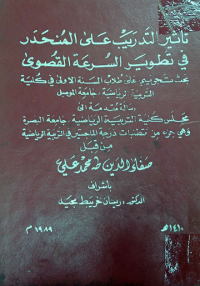 تأثير التدريب على المنحدر
في تطوير السرعة القصوى
بحث تجريبي على طلاب السنة الاولى في كلية
التربية الرياضية / جامعة الموصل
رسالة مقدمة الى
مجلس كلية التربية الرياضية - جامعة البصرة
وهي جزء من متطلبات درجة الماجستير في التربية الرياضية
من قبل
صفاء الدين طه محمد علي
باشراف
الدكتور ريسان خريبط مجيد
١٤١٠ هـ ١٩٨٩ م